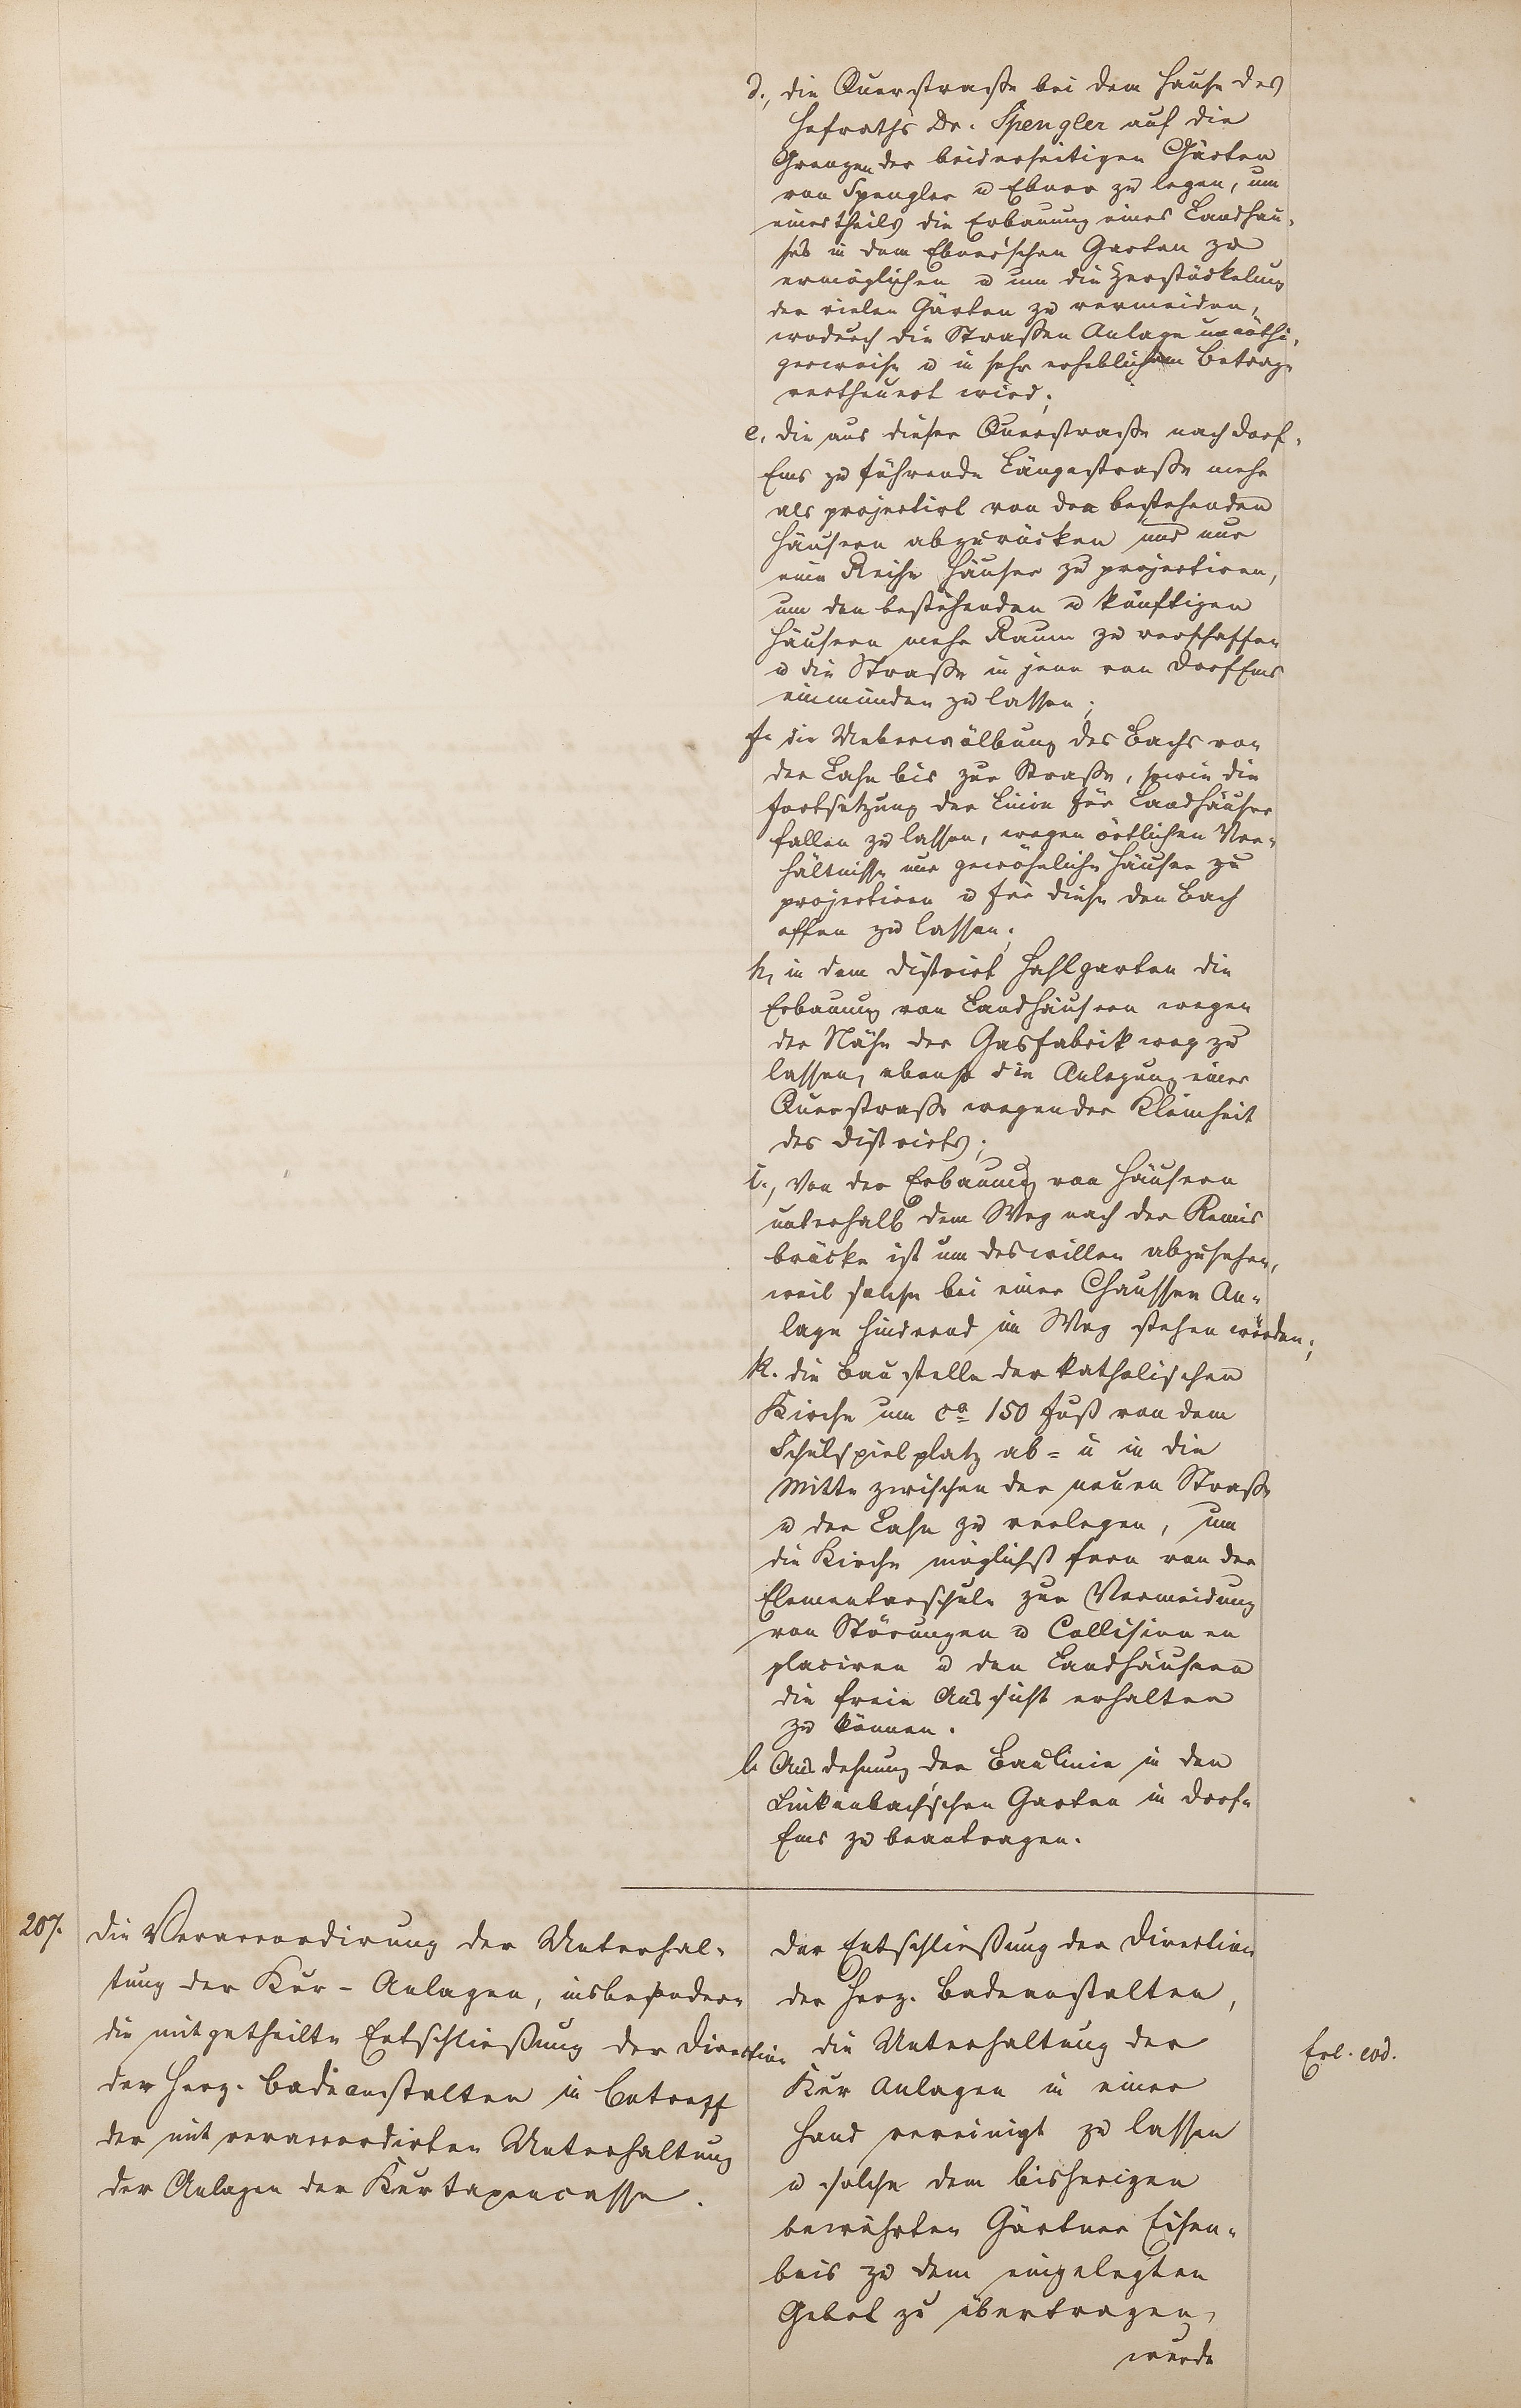 d., die Querstraße bei dem Hause des
Hofraths Dr. Spengler auf die
Grenzen der beiderseitigen Gärten
von Spengler u Ebner zu legen, um
einestheils die Erbauung eines Landhau-
ses in dem Ebner'schen Garten zu
ermöglichen u um die Zerstückelung
der vielen Gärten zu vermeiden,
wodurch die Straßen Anlage unnöthi-
gerweise u in sehr erheblichem Betrage
vertheuert wird;
e, die aus dieser Querstraße nach Dorf-
Ems zu führende Längestraße mehr
als projectirt von den bestehenden
Häusern abzurücken und nur
eine Reihe Häuser zu projectiren,
um den bestehenden u künftigen
Häusern mehr Raum zu verschaffen
u die Straße in jene von Dorf Ems
einmünden zu lassen;
f. die Ueberwölbung des Bachs von
der Lahn bis zur Straße, sowie die
Fortsetzung der Linie für Landhäuser
fallen zu lassen, wegen örtlichen Ver-
hältnisse nur gewöhnliche Häuser zu
projectiren u für diese den Bach
offen zu lassen;
h, in dem District Hahlgarten die
Erbauung von Landhäusern wegen
der Nähe der Gasfabrik weg zu
lassen, ebenso die Anlegung einer
Querstraße wegen der Kleinheit
des Districts;
i., Von der Erbauung von Häusern
unterhalb dem Weg nach der Remis
brücke ist um deswillen abzusehen,
weil solche bei einer Chaussee An-
lage hindernd im Weg stehen würden;
k. die Baustelle der katholischen
Kirche um ca 150 Fuß von dem
Schulspielplatz ab- u in die
Mitte zwischen der neuen Straße
u der Lahn zu verlegen, um
die Kirche möglichst fern von der
Elementarschule zur Vermeidung
von Störungen u Collisionen
placiren u den Landhäusern
die freie Aussicht erhalten
zu können.
l. Ausdehnung der Baulinie in den
Linkenbach'schen Garten in Dorf-
Ems zu beantragen.
207.
Die Veraccordirung der Unterhal-
tung der Kur-Anlagen, insbesondere
die mitgetheilte Entschließung der Direction
der Herz. Badeanstalten in Betreff
der mit veraccordirten Unterhaltung
der Anlagen der Kurtaxencasse.
Der Entschließung der Direction
der Herz. Badeanstalten,
die Unterhaltung der
Kur Anlagen in einer
Hand vereinigt zu lassen
u solche dem bisherigen
bewährten Gärtner Eisen-
beis zu dem eingelegten
Gebot zu übertragen,
wurde
Erl. eod.